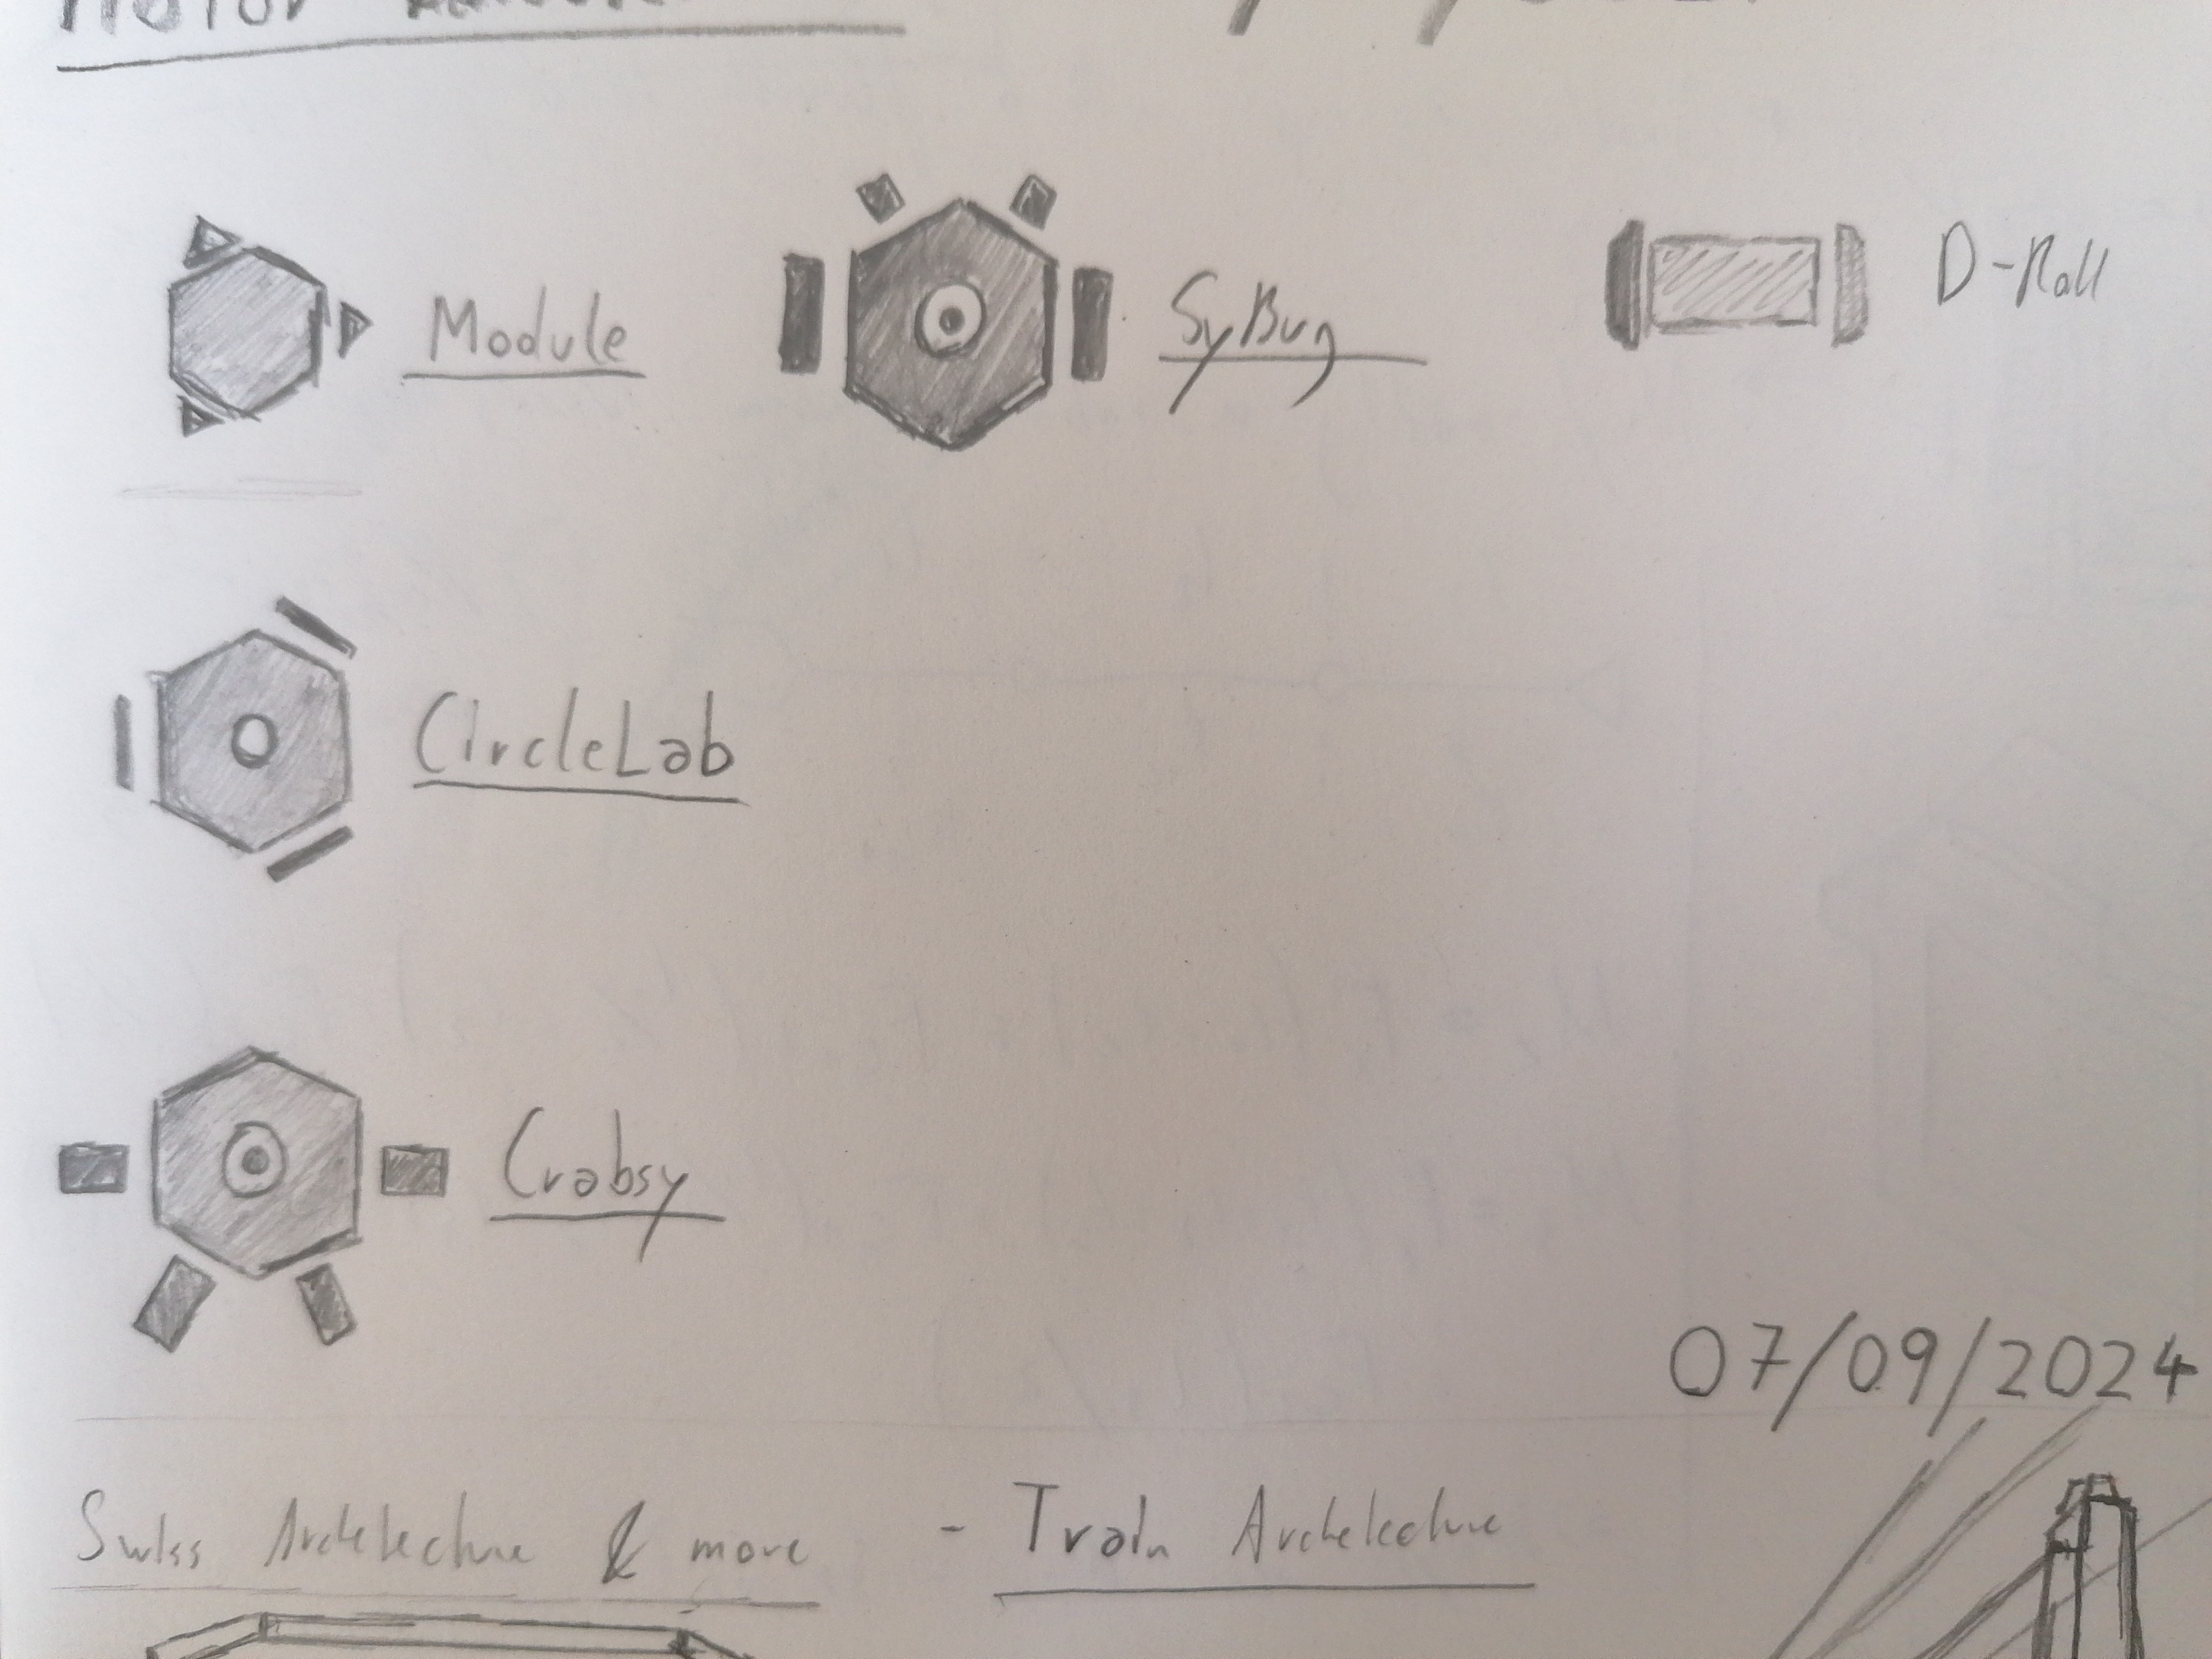 Motor
Module
SyBug
D-Roll
CircleLab
Crabsy
07/09/2024
Swiss Architecture & more - Train Architecture